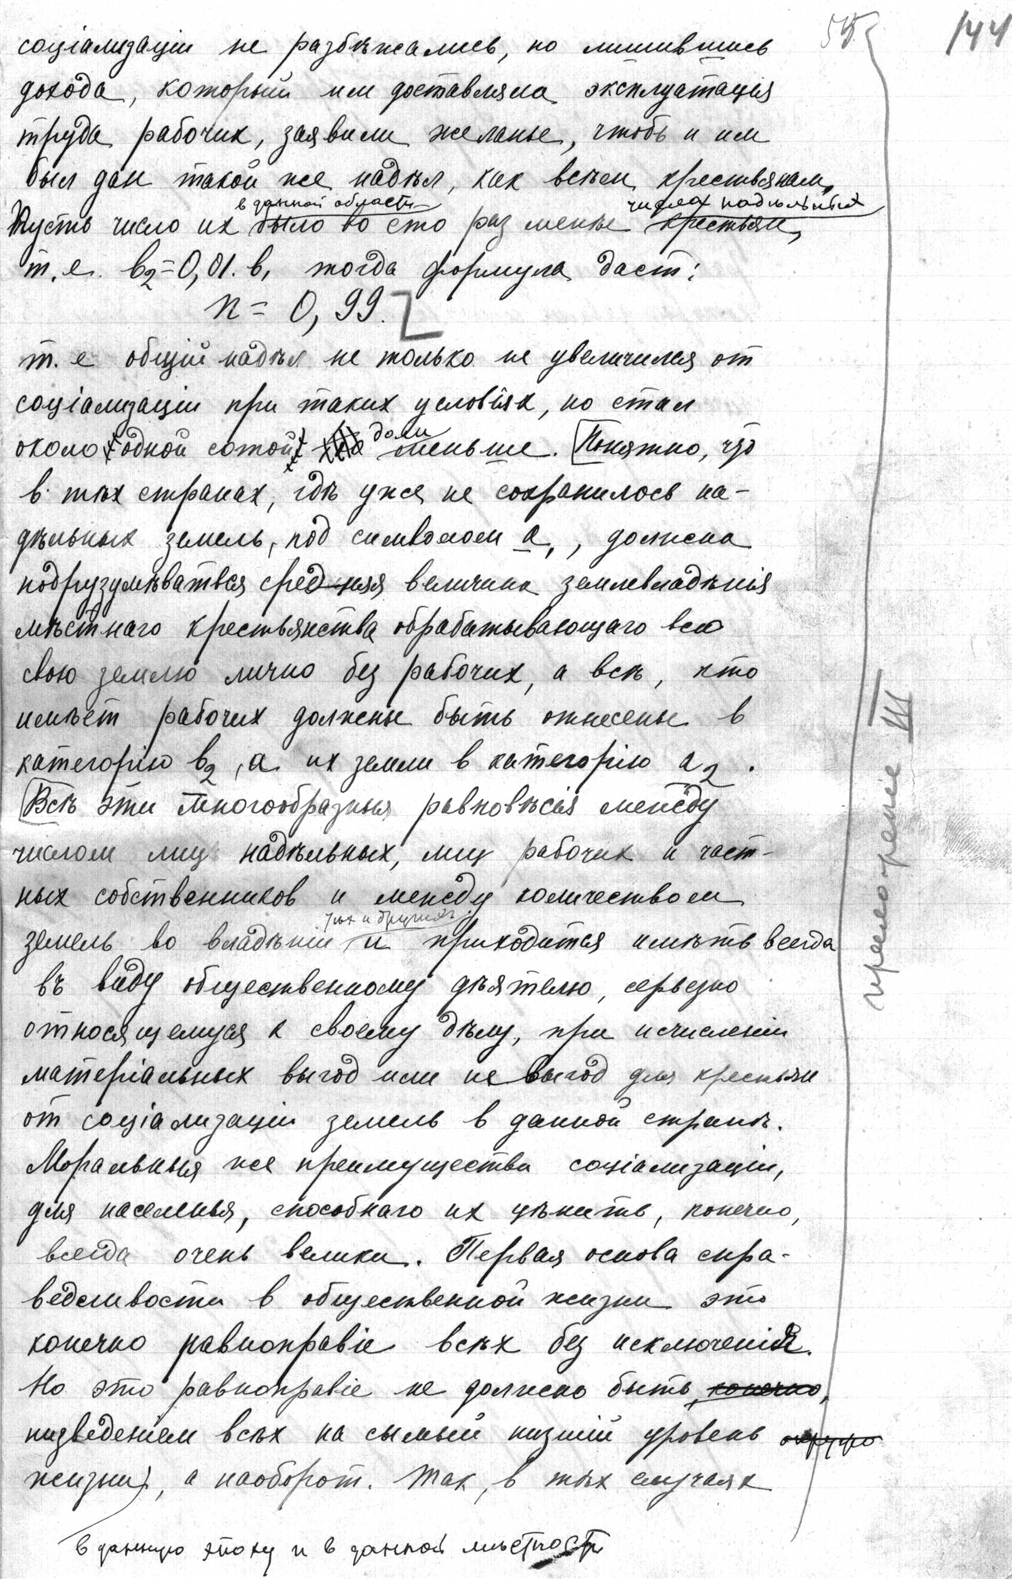 55
144
соціализаціи не разбѣжались, но лишившись
дохода, который им доставляла эксплуатація
труда рабочих, заявили желанье, чтобъ и им
был дан такой же надѣл, как всѣм крестьянам,
в данной области числа надѣльных
Пусть число их было во сто раз менье крестьян,
т.е. в2=0,01.в, тогда формула даст:
n = 0,99.
т.е общій надѣл не только не увеличился от
соціализаціи при таких условіях, но стал
доли
около одной сотой меньше. Понятно, что
в тѣх странах, гдѣ уже не сохранилось на-
дѣльных земель, под символом а, , должна
подразумѣваться средняя величина землевладѣнія
мѣстнаго крестьянства обрабатывающаго всю
свою землю лично без рабочих, а всѣ, кто
имѣет рабочих должны быть отнесены в
категорію в2, а их земли в категорію а2.
Всѣ эти многообразныя равновѣсія между
числом лиц надѣльных, лиц рабочих и част-
ных собственников и между количеством
тѣх и других
земель во владѣніи и приходится имѣть всегда
въ виду общественному дѣятелю, серьезно
относящемуся к своему дѣлу, при исчисленіи
матеріальных выгод или не выгод для крестьян
от соціализаціи земель в данной странѣ.
Моральныя же преимущества соціализаціи,
для населенья, способнаго их цѣнить, конечно,
всегда очень велики. Первая основа спра-
ведливости в общественной жизни это
конечно равноправіе всѣх без исключенія.
Но это равноправіе не должно быть, конечно,
низведеніем всѣх на самый низшій уровень
жизни, а наоборот. Так, в тѣх случаях
в данную эпоху и в данной мѣстности
примѣчаніе III